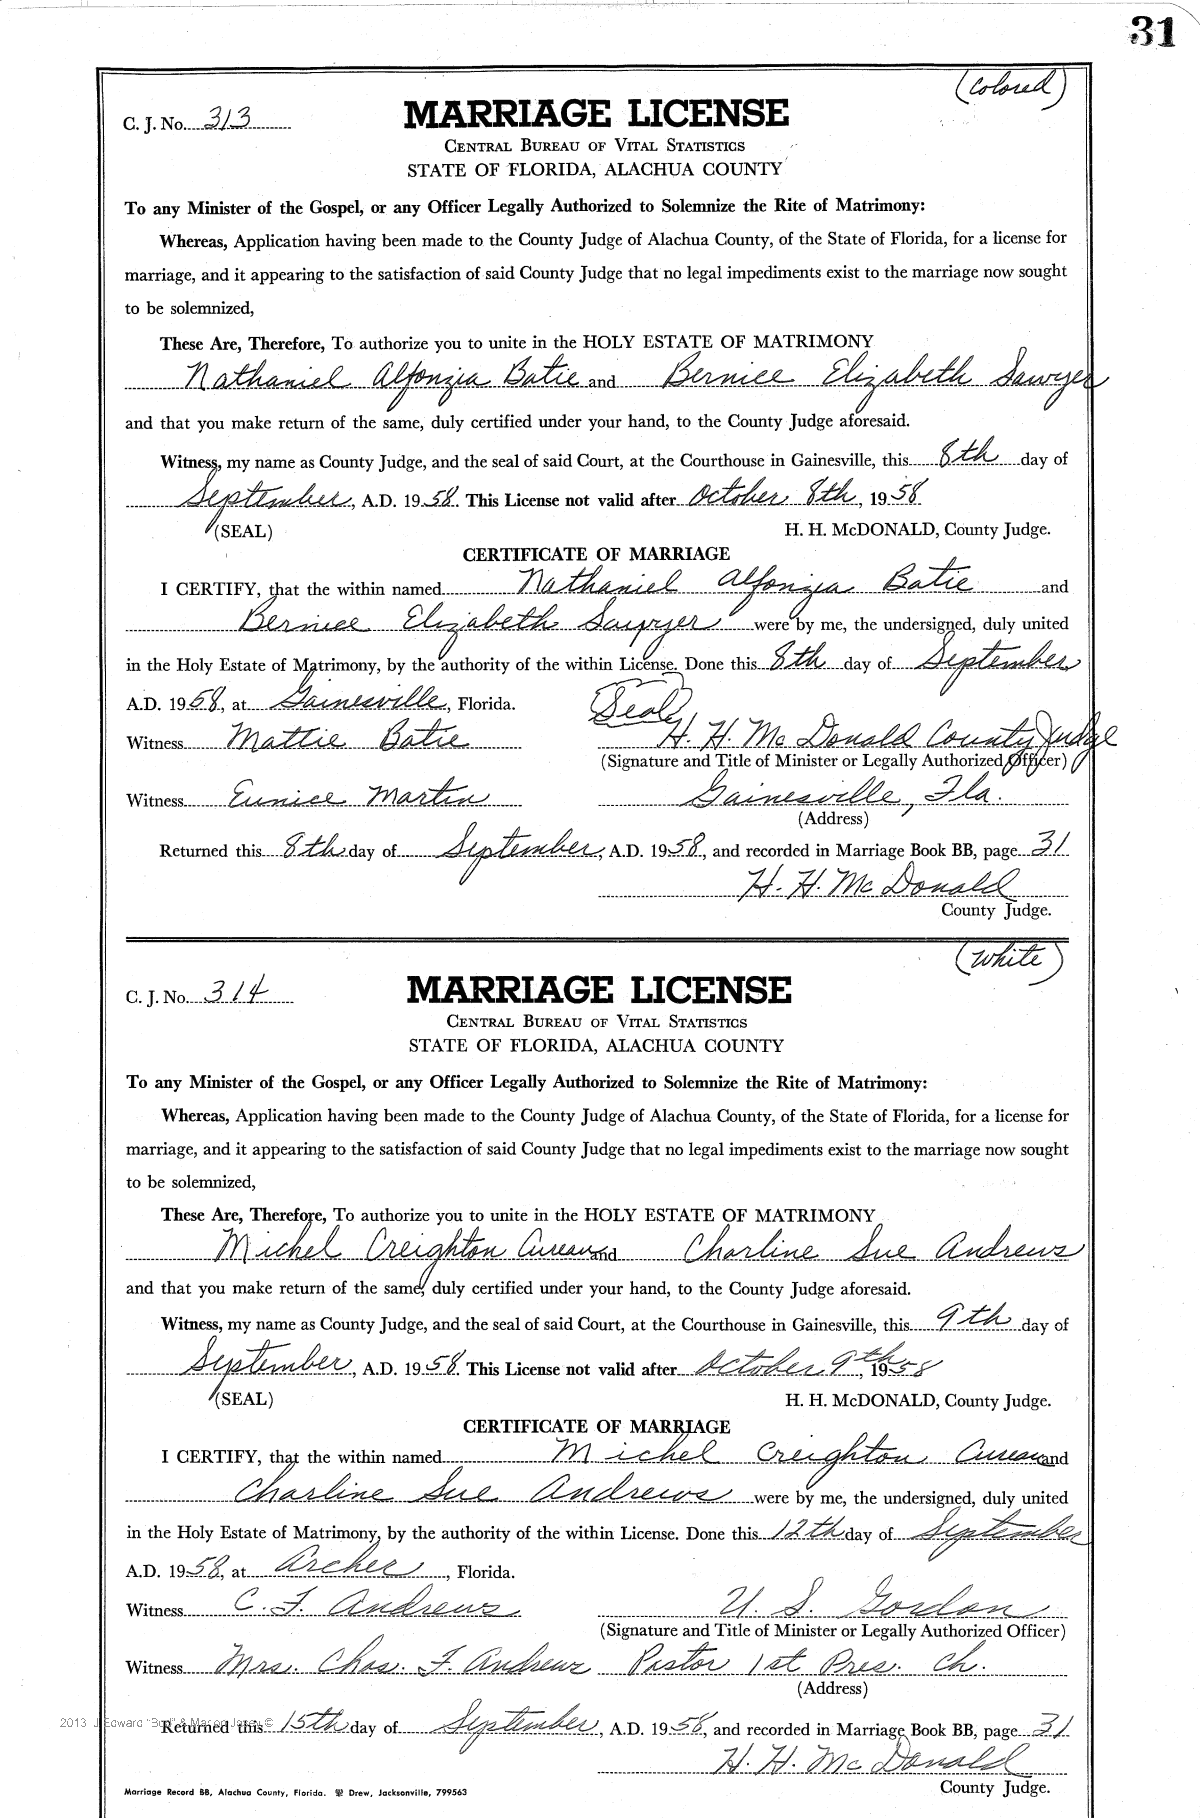 31
(Colored)
C. J. No. 313
MARRIAGE LICENSE
CENTRAL BUREAU OF VITAL STATISTICS
STATE OF FLORIDA, ALACHUA COUNTY
To any Minister of the Gospel, or any Officer Legally Authorized to Solemnize the Rite of Matrimony:
Whereas, Application having been made to the County Judge of Alachua County, of the State of Florida, for a license for
marriage, and it appearing to the satisfaction of said County Judge that no legal impediments exist to the marriage now sought
to be solemnized,
These Are, Therefore, To authorize you to unite in the HOLY ESTATE OF MATRIMONY
Nathaniel Alfonzia Batie and Bernice Elizabeth Sawyer
and that you make return of the same, duly certified under your hand, to the County Judge aforesaid.
Witness, my name as County Judge, and the seal of said Court, at the Courthouse in Gainesville, this 8th day of
September, A.D. 1958. This License not valid after October 8th, 1958
(SEAL) H. H. McDONALD, County Judge.
CERTIFICATE OF MARRIAGE
I CERTIFY, that the within named Nathaniel Alfonzia Batie and
Bernice Elizabeth Sawyer were by me, the undersigned, duly united
in the Holy Estate of Matrimony, by the authority of the within License. Done this 8th day of September
A.D. 1958, at Gainesville, Florida. (Seal)
Witness Mattie Batie H. H. McDonald County Judge
(Signature and Title of Minister or Legally Authorized Officer)
Witness Eunice Martin Gainesville, Fla.
(Address)
Returned this 8th day of September, A.D. 1958, and recorded in Marriage Book BB, page 31
H. H. McDonald
County Judge.
(White)
C. J. No. 314
MARRIAGE LICENSE
CENTRAL BUREAU OF VITAL STATISTICS
STATE OF FLORIDA, ALACHUA COUNTY
To any Minister of the Gospel, or any Officer Legally Authorized to Solemnize the Rite of Matrimony:
Whereas, Application having been made to the County Judge of Alachua County, of the State of Florida, for a license for
marriage, and it appearing to the satisfaction of said County Judge that no legal impediments exist to the marriage now sought
to be solemnized,
These Are, Therefore, To authorize you to unite in the HOLY ESTATE OF MATRIMONY
Michel Creighton and Charline Sue Andrews
and that you make return of the same, duly certified under your hand, to the County Judge aforesaid.
Witness, my name as County Judge, and the seal of said Court, at the Courthouse in Gainesville, this 9th day of
September, A.D. 1958. This License not valid after October 9th, 1958
(SEAL) H. H. McDONALD, County Judge.
CERTIFICATE OF MARRIAGE
I CERTIFY, that the within named Michel Creighton and
Charline Sue Andrews were by me, the undersigned, duly united
in the Holy Estate of Matrimony, by the authority of the within License. Done this 12th day of September
A.D. 1958, at Archer, Florida.
Witness C. F. Andrews U. S. Gordon
(Signature and Title of Minister or Legally Authorized Officer)
Witness Mrs. Chas. F. Andrews Pastor 1st Pres. Ch.
(Address)
2013 J. Edward "Bud" & Mason ©
Returned this 15th day of September, A.D. 1958, and recorded in Marriage Book BB, page 31
H. H. McDonald
County Judge.
Marriage Record BB, Alachua County, Florida. Drew, Jacksonville, 799563